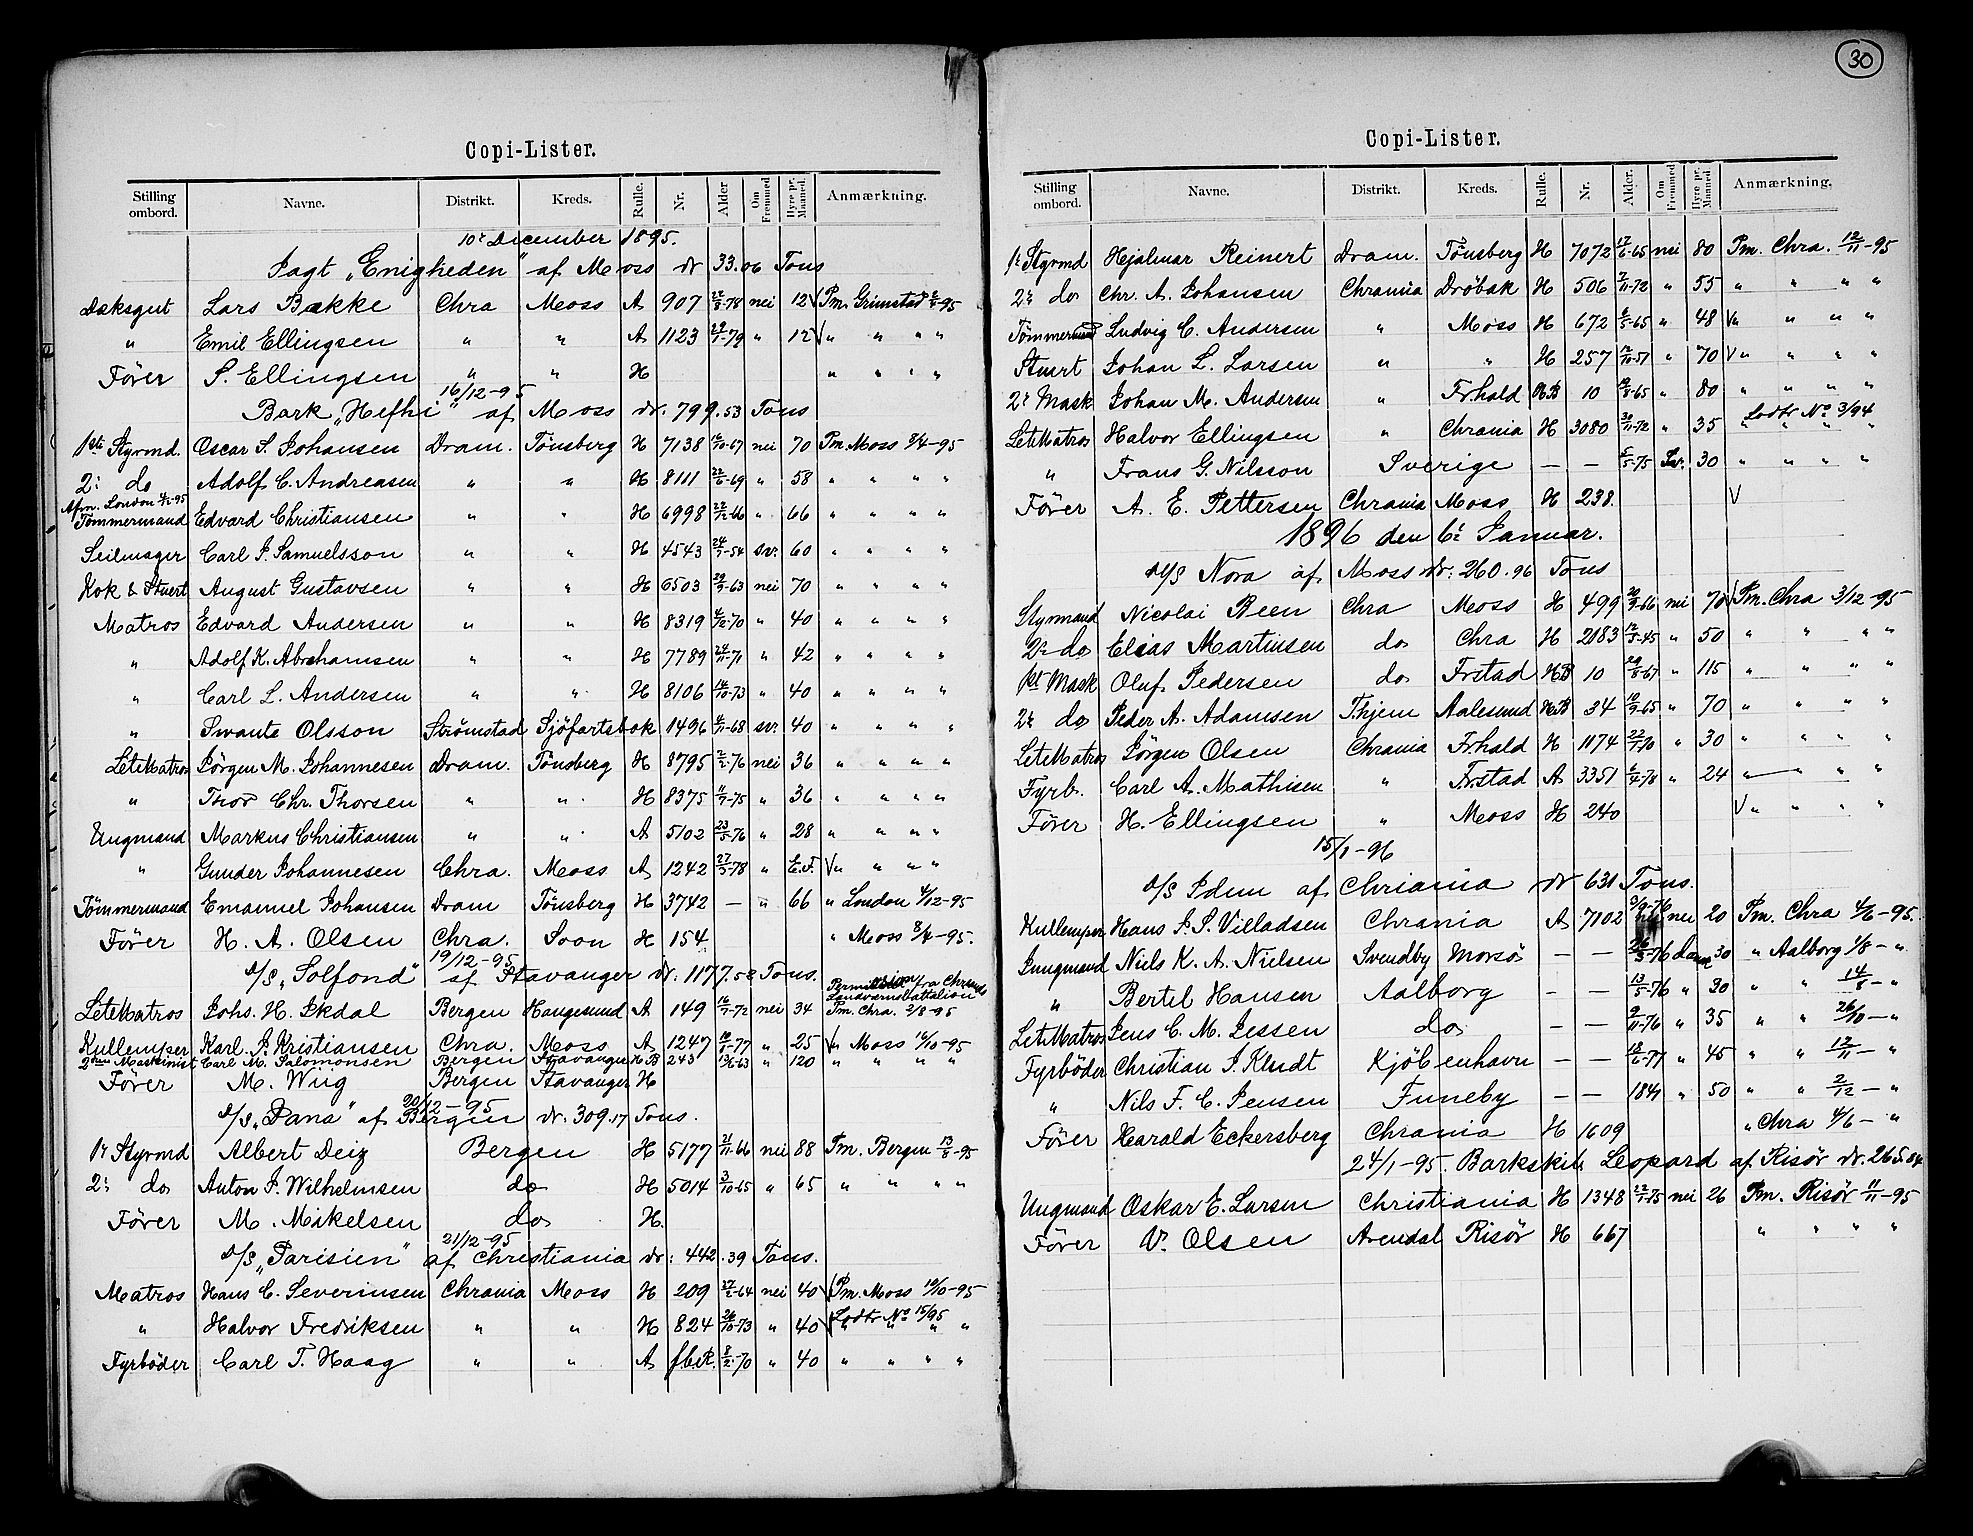 Copi-Lister.
Stilling ombord. Navne. Distrikt. Kreds. Rulle. Nr. Alder Om Fremmed Hyre pr. Maaned. Anmærkning.
10: December 1895.
Jagt „Enigheden" af Moss dr 33.06 Tons
Dæksgut Lars Bakke Chra Moss A 907 22/8-78 nei 12 Pm. Grimstad -95
" Emil Ellingsen " " A 1123 -79 " 12 " " " "
Fører S. Ellingsen " " H " " " "
16/12-95
Bark „Hefhi" af Moss dr. 799.53 Tons
1ste Styrmd. Oscar S. Johansen Dram. Tönsberg H 7138 -67 nei 70 Pm. Moss 8/4-95
2: do Adolf C. Andreasen " " H 8111 -69 " 58 " " " "
Afm. London 4/12-95
Tömmermand Edvard Christiansen " " H 6998 22/12-66 " 66 " " " "
Seilmager Carl J. Samuelsson " " H 4543 -54 sv. 60 " " " "
Kok & Stuert August Gustavsen " " H 6503 -63 nei 70 " " " "
Matros Edvard Andersen " " H 8319 -70 " 40 " " " "
" Adolf K. Abrahamsen " " H 7789 24/11-71 " 42 " " " "
" Carl L. Andersen " " H 8106 -73 " 40 " " " "
" Swante Olsson Strömstad Sjöfartsbok 1496 -68 sv. 40 " " " "
LetMatros Jörgen M. Johannesen Dram. Tönsberg H 8795 2/2-76 nei 36 " " " "
" Thor Chr. Thorsen " " H 8375 -75 " 36 " " " "
Ungmand Markus Christiansen " " A 5102 23/5-76 " 28 " " " "
" Gunder Johannesen Chra. Moss A 1242 27/5-78 " E.F. " " " "
Tömmermand Emanuel Johansen Dram Tönsberg H 3742 — " 66 " London 4/12-95
Fører H. A. Olsen Chra. Soon H 154 " Moss 8/4-95.
19/12-95
D/S „Solfond" af Stavanger dr. 1177.52 Tons.
Permission fra Chrania Landværnsbattalion
LetMatros Johs. H. Ekdal Bergen Haugesund A 149 -72 nei 34 Pm. Chra. 2/8-95
Kullemper Karl J. Kristiansen Chra. Moss A 1247 -77 " 25 " Moss 16/10-95
2den Maskinist Carl M. Salomonsen Bergen Stavanger HB 243 -63 " 120 " " " "
Fører M. Wiig Bergen Stavanger H
20/12-95
D/S „Dana" af Bergen dr. 309.17 Tons.
1: Styrmd Albert Deiz Bergen H 5177 21/11-66 nei 88 Pm. Bergen -95
2: do Anton J. Wilhelmsen do H 5014 3/10-65 " 65 " " " "
Fører M. Mikelsen do H.
21/12-95
D/S „Parisien" af Christiania dr: 442.39 Tons.
Matros Hans C. Severinsen Chrania Moss H 209 27/2-64 nei 40 Pm. Moss 10/10-95
Lodtr No 15/95
" Halvor Fredriksen " " H 824 26/10-73 " 40 " " " "
Fyrböder Carl T. Haag " " A f.b.R. 8/2-70 " 40 " " " "
30
Copi-Lister.
Stilling ombord. Navne. Distrikt. Kreds. Rulle. Nr. Alder. Om Fremmed Hyre pr. Maaned Anmærkning.
1: Styrmd Hjalmar Reinert Dram. Tönsberg H 7072 17/6-65 nei 80 Pm. Chra. 12/11-95
2: do Chr. A. Johansen Chrania Dröbak H 506 7/11-72 " 55 " " " "
Tömmermand Ludvig C. Andersen " Moss H 672 -65 " 48 " " " "
Stuert Johan L. Larsen " " H 257 -57 " 70 " " " "
2: Mask Johan M. Andersen " Frhald HB 10 -65 " 80 " " " "
Lodtr No 3/94
LetMatros Halvor Ellingsen " Chrania H 3080 30/11-72 " 35 " " " "
" Frans G. Nilsson Sverige — — 5/5-75 Sv. 30 " " " "
Fører A. E. Pettersen Chrania Moss H 238.
1896 den 6: Januar.
D/S Nora af Moss dr: 260.96 Tons
Styrmand Nicolai Been Chra Moss H 499 20/9-66 nei 70 Pm. Chra 3/12-95
2: do Elias Martinsen do Chra H 2083 -45 " 50 " " " "
1st Mask Oluf Pedersen do Frstad HB 10 29/8-67 " 115 " " " "
2: do Peder A. Adamsen Thjem Aalesund HB 34 10/9-65 " 70 " " " "
LetMatros Jörgen Olsen Chrania Frhald H 1174 -70 " 30 " " " "
Fyrb. Carl A. Mathisen " Frstad A 3351 " 24 " " " "
Fører H. Ellingsen " Moss H 240 " " " "
15/1-96
D/S Idem af Chriania dr 631 Tons.
Kullemper Hans P. S. Villadsen Chrania A 7102 3/9-76 nei 20 Pm. Chra 4/6-95.
Jungmand Niels K. A. Nielsen Svendby Morsö — — 26/5-76 dansk 30 " Aalborg 1/8-"
" Bertel Hansen Aalborg — — 13/5-76 " 30 " " 14/8-"
LetMatros Jens C. M. Jessen do — — 9/11-76 " 35 " " 26/10-"
Fyrböder Christian J. Klindt Kjöbenhavn — — 18/6-77 " 45 " " 12/11-"
" Nils F. C. Jensen Funeby — — " 50 " " 2/12-"
Fører Harald Eckersberg Chrania H 1609 " Chra 4/6-"
24/1-95. Barkskib Leopard af Risör dr. 265.84
Ungmand Oskar E. Larsen Christiania H 1348 -75 nei 26 Pm. Risör 11/11-95
Fører V. Olsen Arendal Risör H 667 " " " "